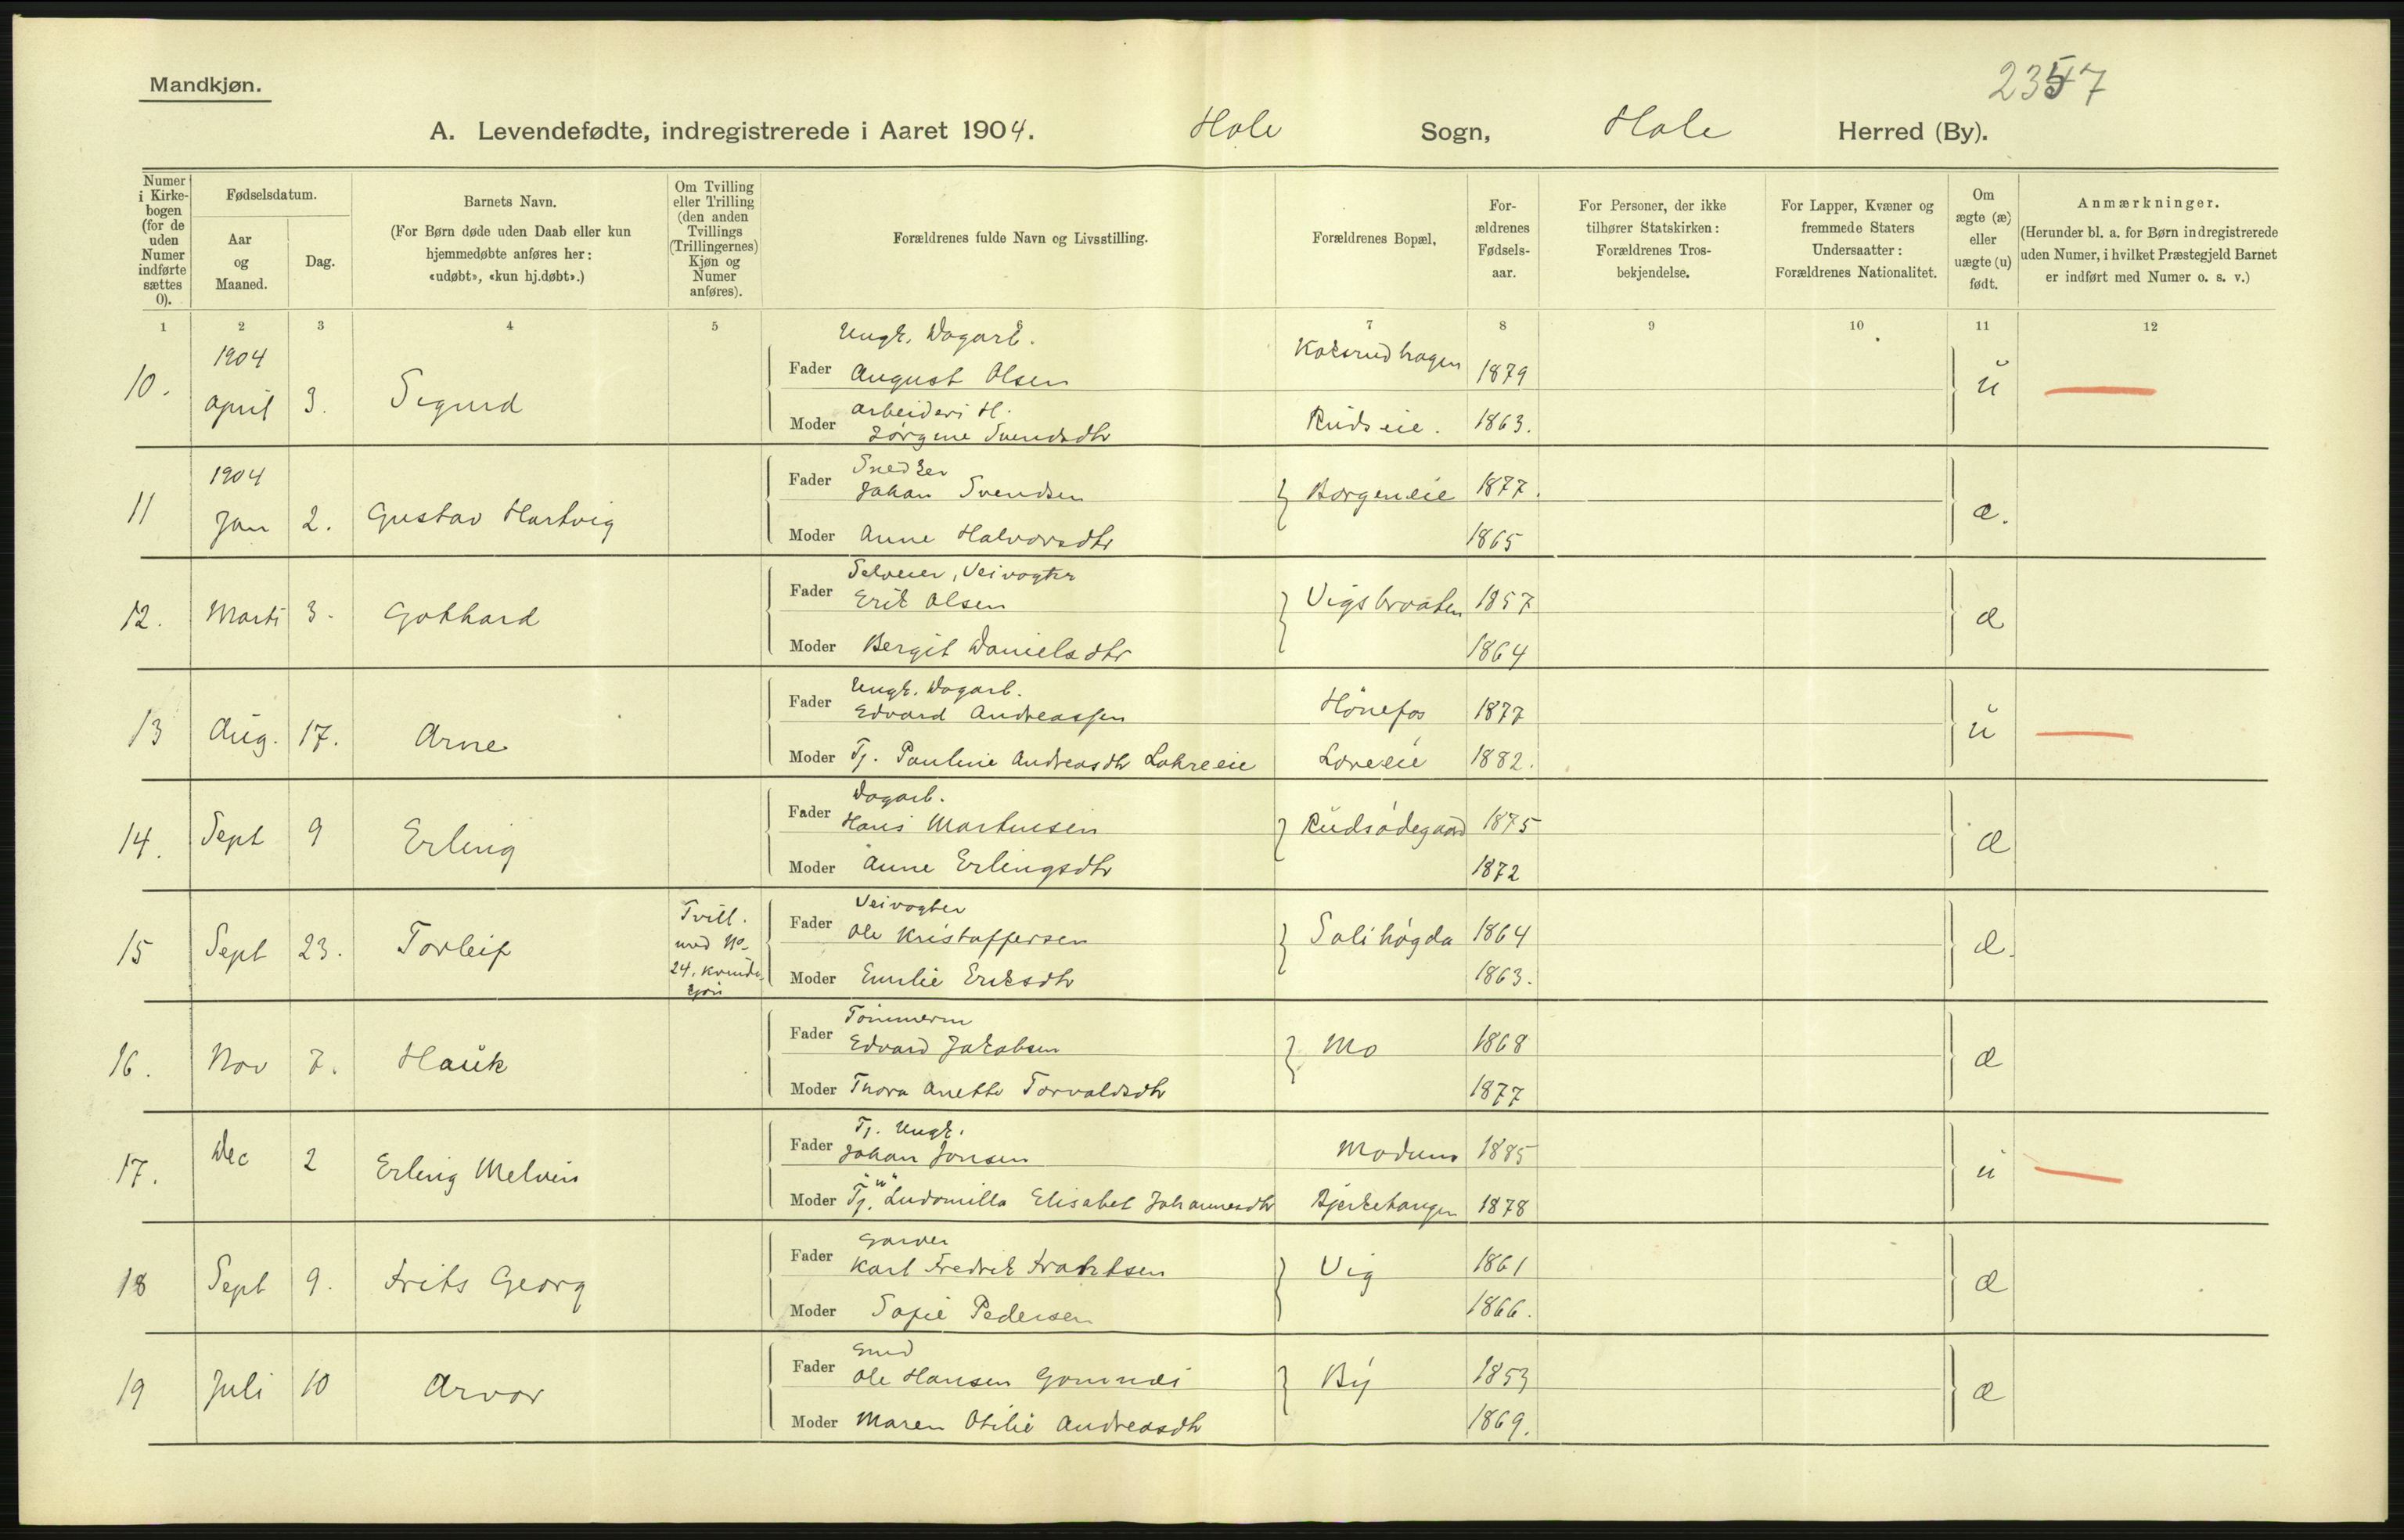 2357
Mandkjøn.
A. Levendefødte, indregistrerede i Aaret 1904. Hole Sogn, Hole Herred (By).
Numer i Kirkebogen (for de uden Numer indførte sættes 0).
Fødselsdatum.
Aar og Maaned.
Dag.
Barnets Navn.
(For Børn døde uden Daab eller kun hjemmedøbte anføres her: «udøbt», «kun hj.døbt».)
Om Tvilling eller Trilling (den anden Tvillings (Trillingernes) Kjøn og Numer anføres).
Forældrenes fulde Navn og Livsstilling.
Forældrenes Bopæl,
Forældrenes Fødselsaar.
For Personer, der ikke tilhører Statskirken: Forældrenes Trosbekjendelse.
For Lapper, Kvæner og fremmede Staters Undersaatter: Forældrenes Nationalitet.
Om ægte (æ) eller uægte (u) født.
Anmærkninger.
(Herunder bl. a. for Børn indregistrerede uden Numer, i hvilket Præstegjeld Barnet er indført med Numer o. s. v.)
1 2 3 4 5 7 8 9 10 11 12
Ungk. Dagarb.
10. 1904 April 3. Sigurd Fader August Olsen Koksrudhagen 1879 u
Arbeideri H.
Moder Jörgine Svendsdtr Rudseie. 1863.
Snedker
11 1904 Jan 2. Gustav Hartvig Fader Johan Svendsen Borgeneie 1877. æ.
Moder Anne Halvorsdtr 1865
Selveier, Veivogter
12. Marts 3. Gothard Fader Erik Olsen Vigsbraaten 1857 æ
Moder Bergit Danielsdtr 1864
Ungk. Dagarb.
13 Aug. 17. Arne Fader Edvard Andreassen Hönefos 1877 u
Moder Tj. Pauline Andreasdtr Lohreeie Loreeie 1882.
Dagarb.
14. Sept 9 Erling Fader Hans Martinsen Rudsödegaard 1875 æ
Moder Anne Erlingsdtr 1872
Veivogter
15 Sept 23. Torleif Tvill. med No 24. Kvindekjøn Fader Ole Kristoffersen Solihögda 1864 æ.
Moder Emilie Eriksdtr 1863.
Tömmerm
16. Nov 7. Hauk Fader Edvard Jakobsen Mo 1868 æ
Moder Thora Anette Torvaldsdtr 1877
Tj. Ungk.
17. Dec 2 Erling Melvin Fader Johan Jonsen Modum 1885 u
Moder Tj. Ludomilla Elisabet Johannesdtr Bjerketangen 1878
Garver
18 Sept 9. Frits Georg Fader Karl Fredrik Frantsen Vig 1861 æ
Moder Sofie Pedersen 1866.
Smed
19 Juli 10 Arvor Fader Ole Hansen Gomnæs By 1853 æ
Moder Maren Otilie Andreasdtr 1869.